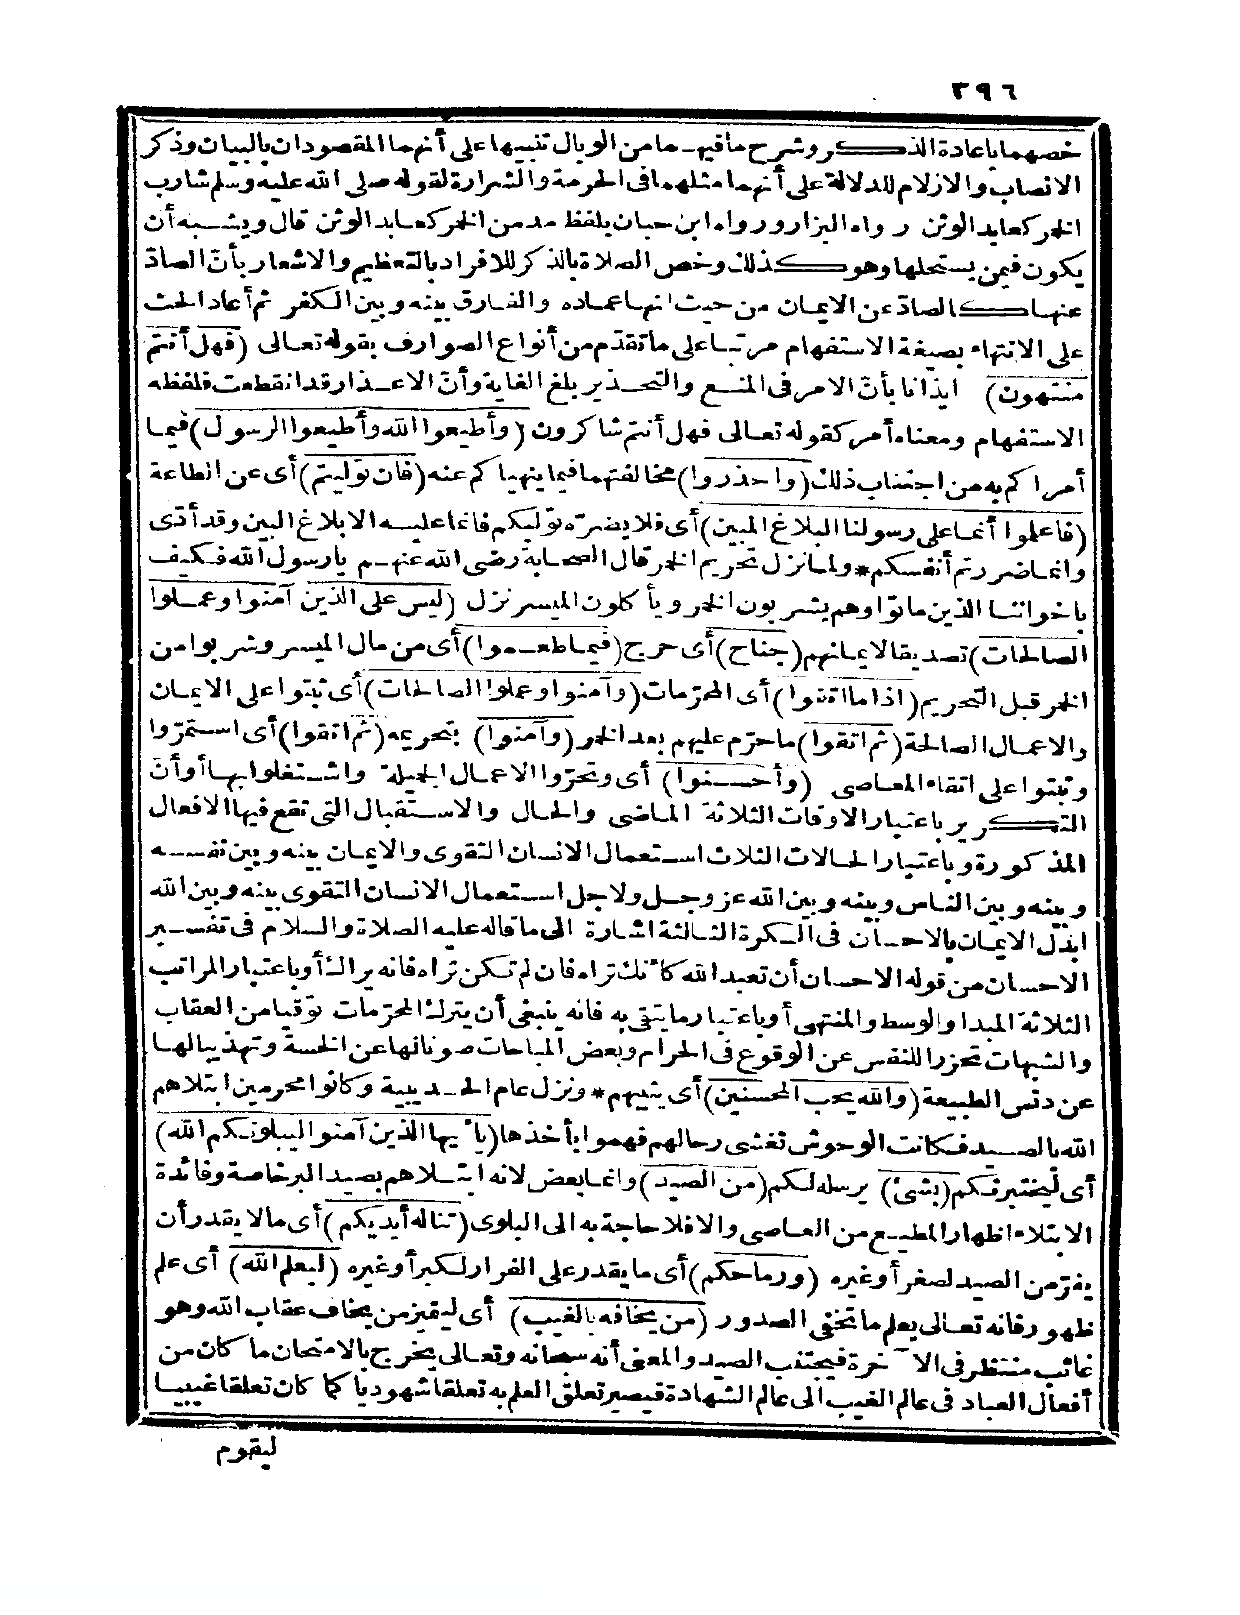 ٣٩٦
خصهما باعادة الذكر وشرح ما فيهما من الوبال تنبيها على أنهما المقصودان بالبيان وذكر
الانصاب والازلام للدلالة على أنهما مثلهما فى الحرمة والشرارة لقوله صلى الله عليه وسلم شارب
الخمر كعابد الوثن رواه البزار ورواه ابن حبان بلفظ مدمن الخمر كعابد الوثن قال ويشبه أن
يكون فيمن يستحلها وهو كذلك وخص الصلاة بالذكر للافراد بالتعظيم والاشعار بأن الصادّ
عنها كالصادّ عن الايمان من حيث انها عماده والفارق بينه وبين الكفر ثم أعاد الحث
على الانتهاء بصيغة الاستفهام مرتبا على ما تقدم من أنواع الصوارف بقوله تعالى (فهل أنتم
منتهون) ايذانا بأنّ الامر فى المنع والتحذير بلغ الغاية وأنّ الاعذار قد انقطعت فلفظه
الاستفهام ومعناه أمر كقوله تعالى فهل أنتم شاكرون (وأطيعوا الله وأطيعوا الرسول) فيما
أمراكم به من اجتناب ذلك (واحذروا) مخالفتهما فيما ينهياكم عنه (فان توليتم) أى عن الطاعة
(فاعلموا أنما على رسولنا البلاغ المبين) أى فلا يضرّه توليكم فانما عليه الابلاغ البين وقد أدّى
وانما ضررتم أنفسكم * ولما نزل تحريم الخمر قال الصحابة رضى الله عنهم يا رسول الله فكيف
باخواننا الذين ماتوا وهم يشربون الخمر ويأكلون الميسر نزل (ليس على الذين آمنوا وعملوا
الصالحات) تصديقا لايمانهم (جناح) أى حرج (فيما طعموا) أى من مال الميسر وشربوا من
الخمر قبل التحريم (اذا ما اتقوا) أى المحرّمات (وآمنوا وعملوا الصالحات) أى ثبتوا على الايمان
والاعمال الصالحة (ثم اتقوا) ما حرّم عليهم بعد الخمر (وآمنوا) بتحريمه (ثم اتقوا) أى استمرّوا
وثبتوا على اتقاء المعاصى (وأحسنوا) أى وتحرّوا الاعمال الجميلة واشتغلوا بها أو أنّ
التكرير باعتبار الاوقات الثلاثة الماضى والحال والاستقبال التى تقع فيها الافعال
المذكورة وباعتبار الحالات الثلاث استعمال الانسان التقوى والايمان بينه وبين نفسه
وبينه وبين الناس وبينه وبين الله عز وجل ولاجل استعمال الانسان التقوى بينه وبين الله
ابدل الايمان بالاحسان فى الكرة الثالثة اشارة الى ما قاله عليه الصلاة والسلام فى تفسير
الاحسان من قوله الاحسان أن تعبد الله كأنك تراه فان لم تكن تراه فانه يراك أو باعتبار المراتب
الثلاثة المبدا والوسط والمنتهى أو باعتبار ما يتقى به فانه ينبغى أن يترك المحرّمات توقيا من العقاب
والشبهات تحرزا للنفس عن الوقوع فى الحرام وبعض المباحات صونا لها عن الخسة وتهذيبا لها
عن دنس الطبيعة (والله يحب المحسنين) أى يثيبهم * ونزل عام الحديبية وكانوا محرمين ابتلاهم
الله بالصيد فكانت الوحوش تغشى رحالهم فهموا بأخذها (يا أيها الذين آمنوا ليبلونكم الله)
أى ليختبرنكم (بشئ) يرسله لكم (من الصيد) وانما بعض لانه ابتلاهم بصيد البرّ خاصة وفائدة
الابتلاء اظهار المطيع من العاصى والا فلا حاجة به الى البلوى (تناله أيديكم) أى ما لا يقدر أن
يفرّ من الصيد لصغر أو غيره (ورماحكم) أى ما يقدر على الفرار لكبر أو غيره (ليعلم الله) أى علم
ظهور فانه تعالى يعلم ما تخفى الصدور (من يخافه بالغيب) أى ليتميز من يخاف عقاب الله وهو
غائب منتظر فى الآخرة فيجتنب الصيد والمعنى أنه سبحانه وتعالى يخرج بالامتحان ما كان من
أفعال العباد فى عالم الغيب الى عالم الشهادة فيصير تعلق العلم به تعلقا شهوديا كما كان تعلقا غيبيا
ليقوم